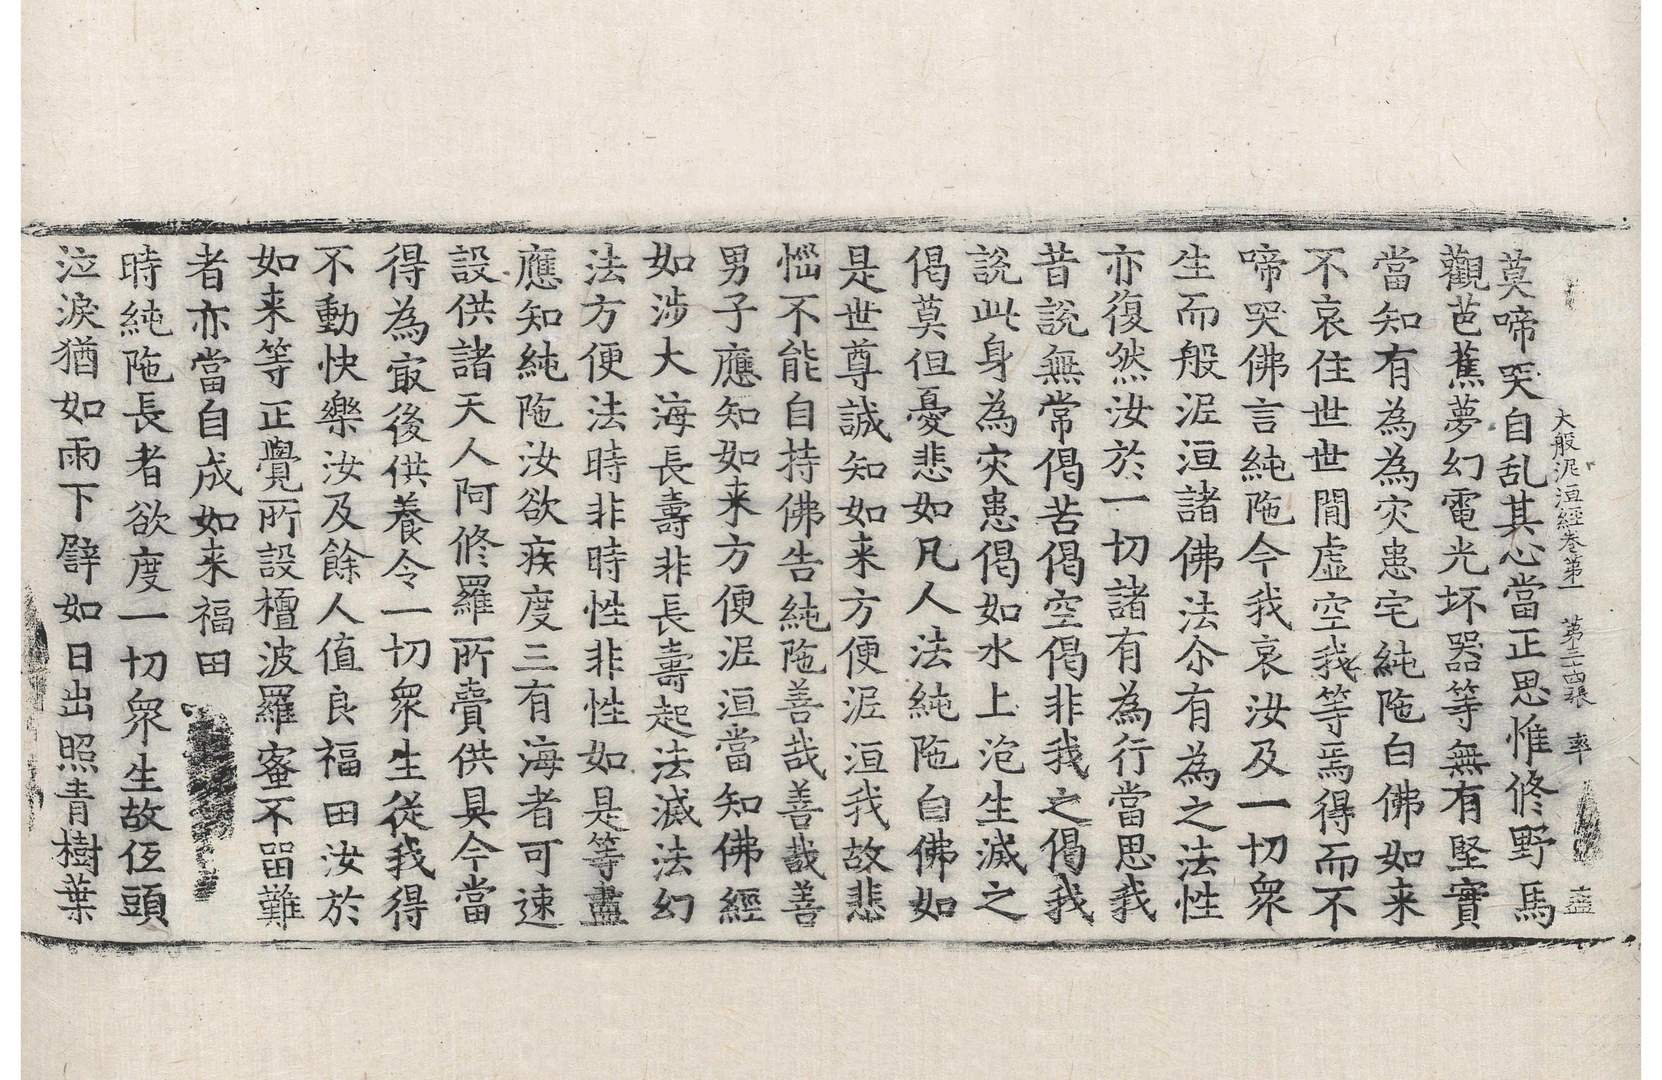 大般泥洹經卷第一　第三十四張　率　盡
莫啼哭自乱其心當正思惟修野馬
觀芭蕉夢幻電光坏器等無有堅實
當知有為為灾患宅純陁白佛如来
不哀住世世閒虛空我等焉得而不
啼哭佛言純陁今我哀汝及一切衆
生而般泥洹諸佛法尒有為之法性
亦復然汝於一切諸有為行當思我
昔說無常偈苦偈空偈非我之偈我
說此身為灾患偈如水上泡生滅之
偈莫但憂悲如凡人法純陁白佛如
是世尊誠知如来方便泥洹我故悲
惱不能自持佛告純陁善哉善哉善
男子應知如来方便泥洹當知佛經
如涉大海長壽非長壽起法滅法幻
法方便法時非時性非性如是等盡
應知純陁汝欲疾度三有海者可速
設供諸天人阿修羅所賣供具今當
得為㝡後供養令一切衆生從我得
不動快樂汝及餘人值良福田汝於
如来等正覺所設檀波羅蜜不留難
者亦當自成如来福田
時純陁長者欲度一切衆生故低頭
泣淚猶如雨下譬如日出照青樹葉